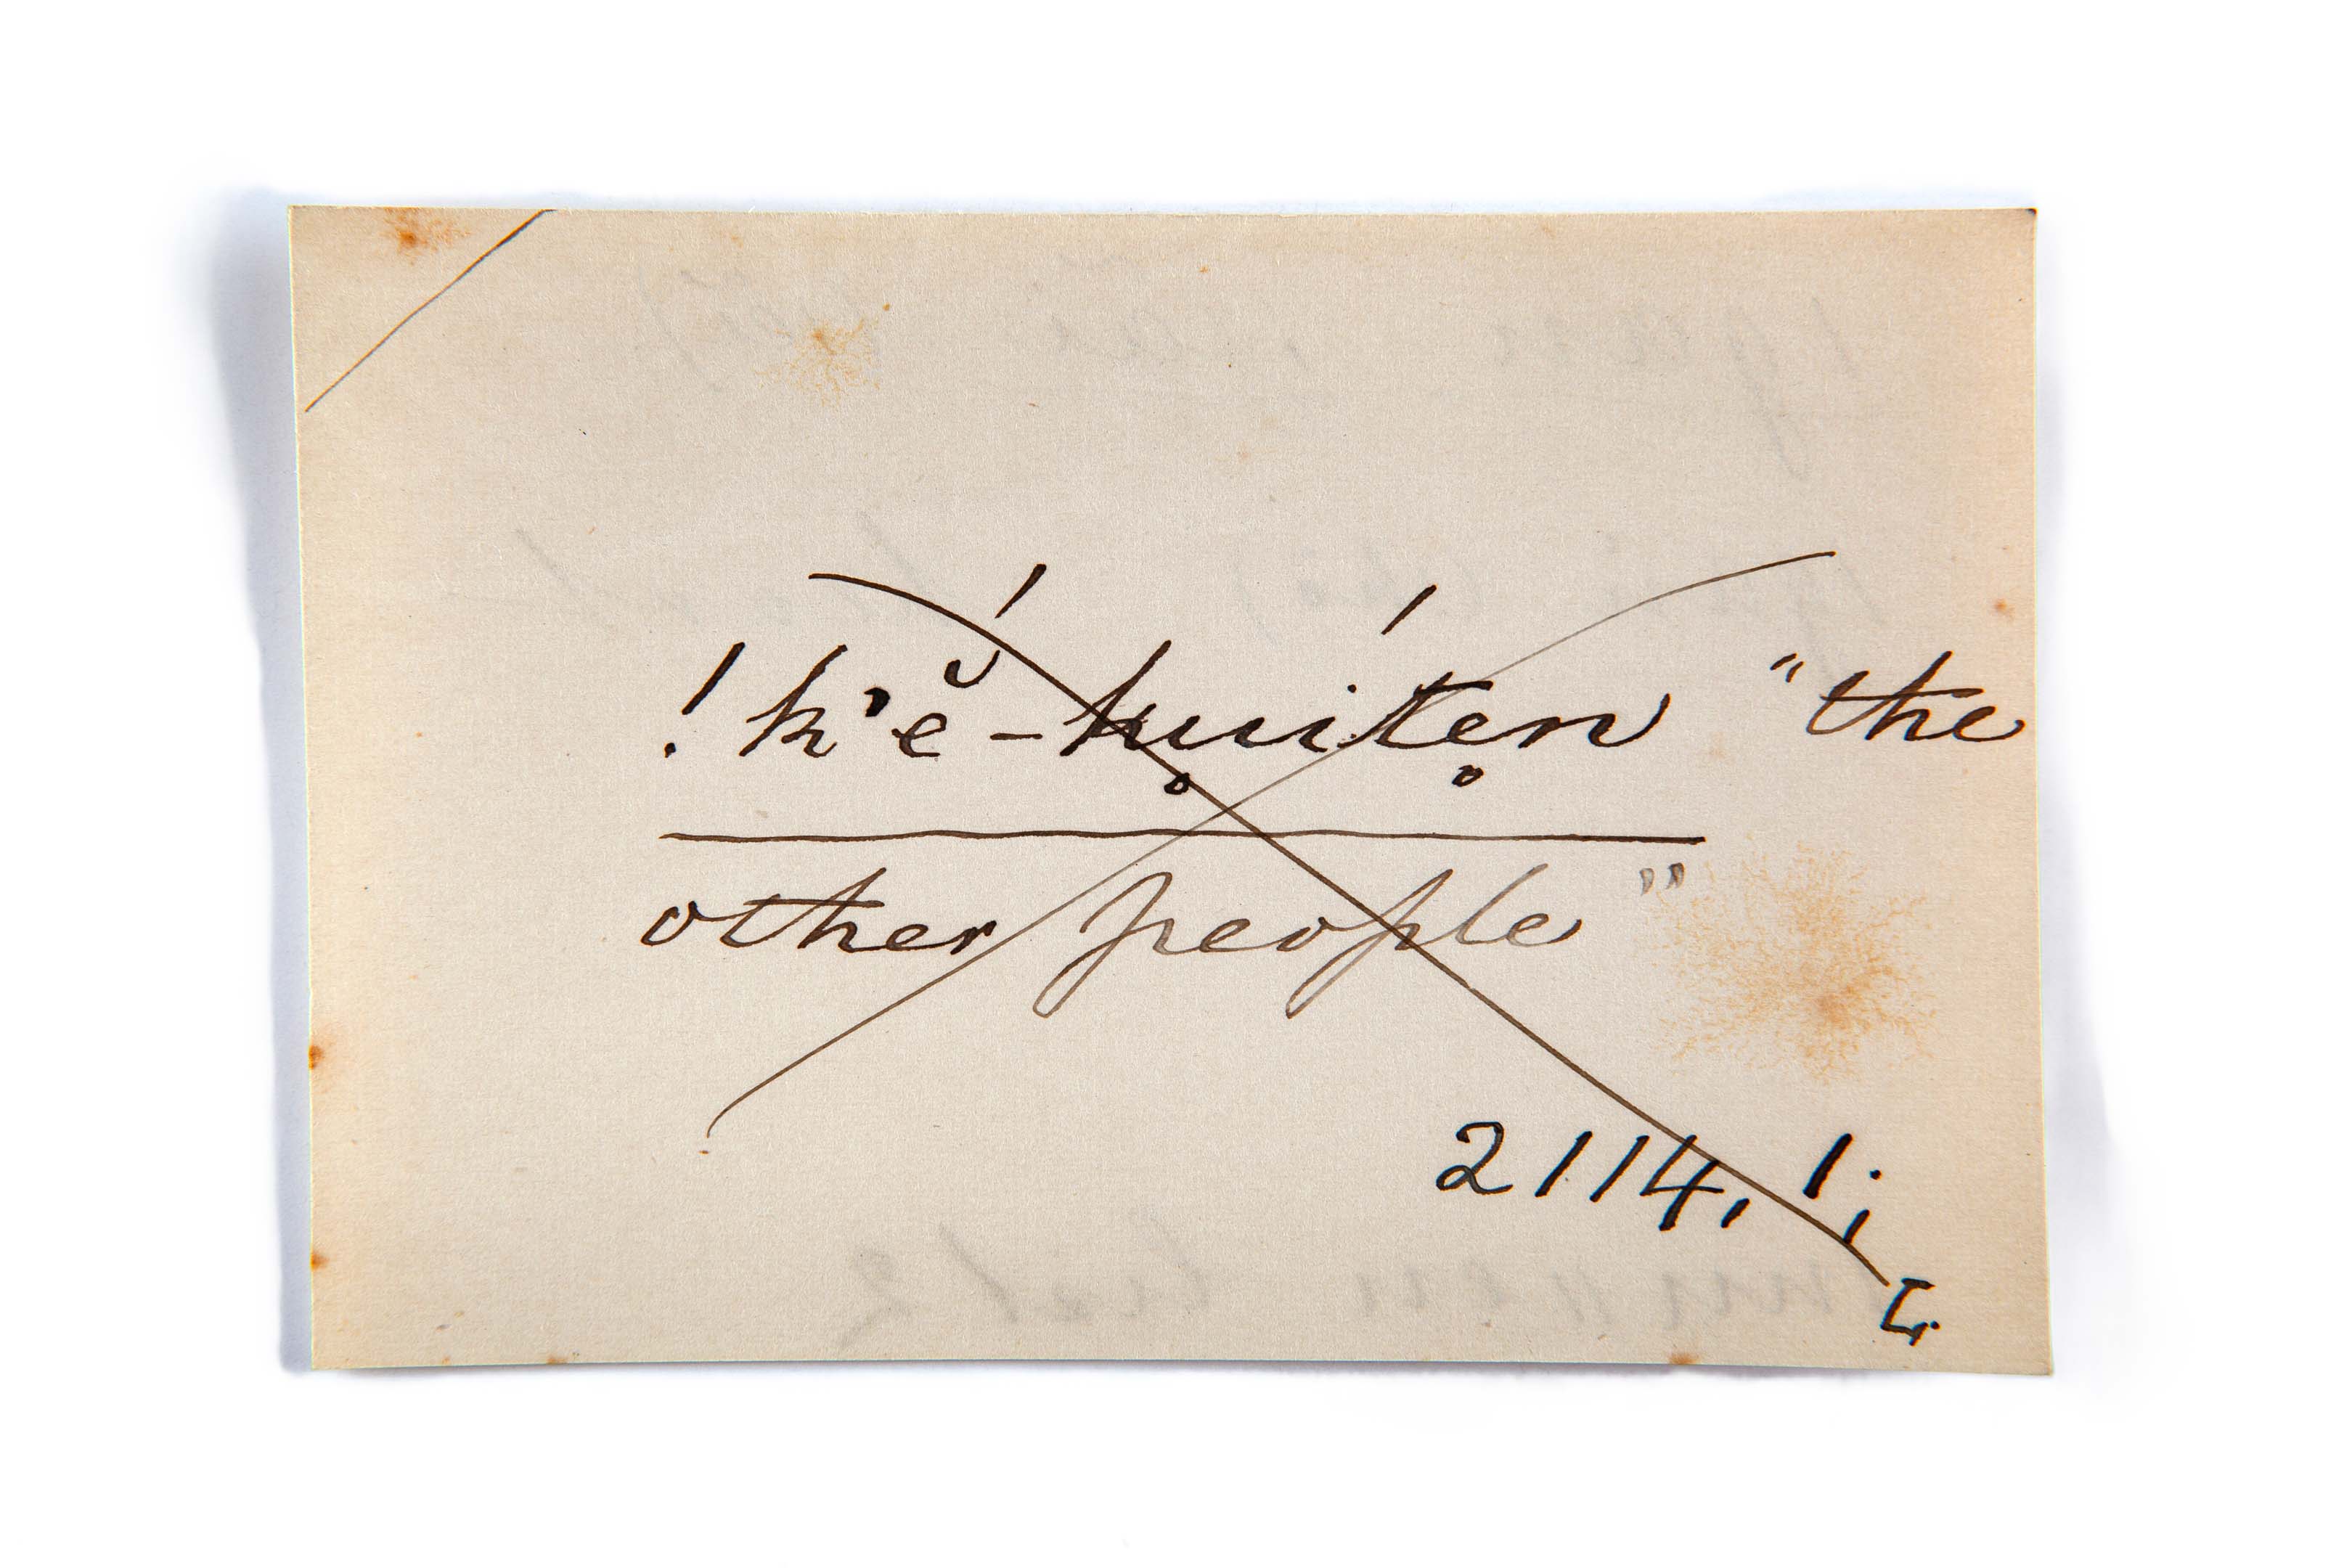 !k'ĕ́-ku̥itẹ́n "the
other people"
2114, 1;
L.